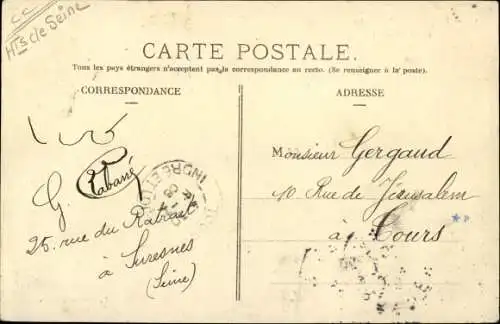 CC
Hts de Seine
CARTE POSTALE.
Tous les pays étrangers n'acceptent pas la correspondance au recto. (Se renseigner à la poste).
CORRESPONDANCE
ADRESSE
Monsieur Gergaud
10 Rue de Jérusalem
à Tours
G. Rabané
25. rue du Ratrait
à Suresnes
(Seine)
INDRE ET LOIRE